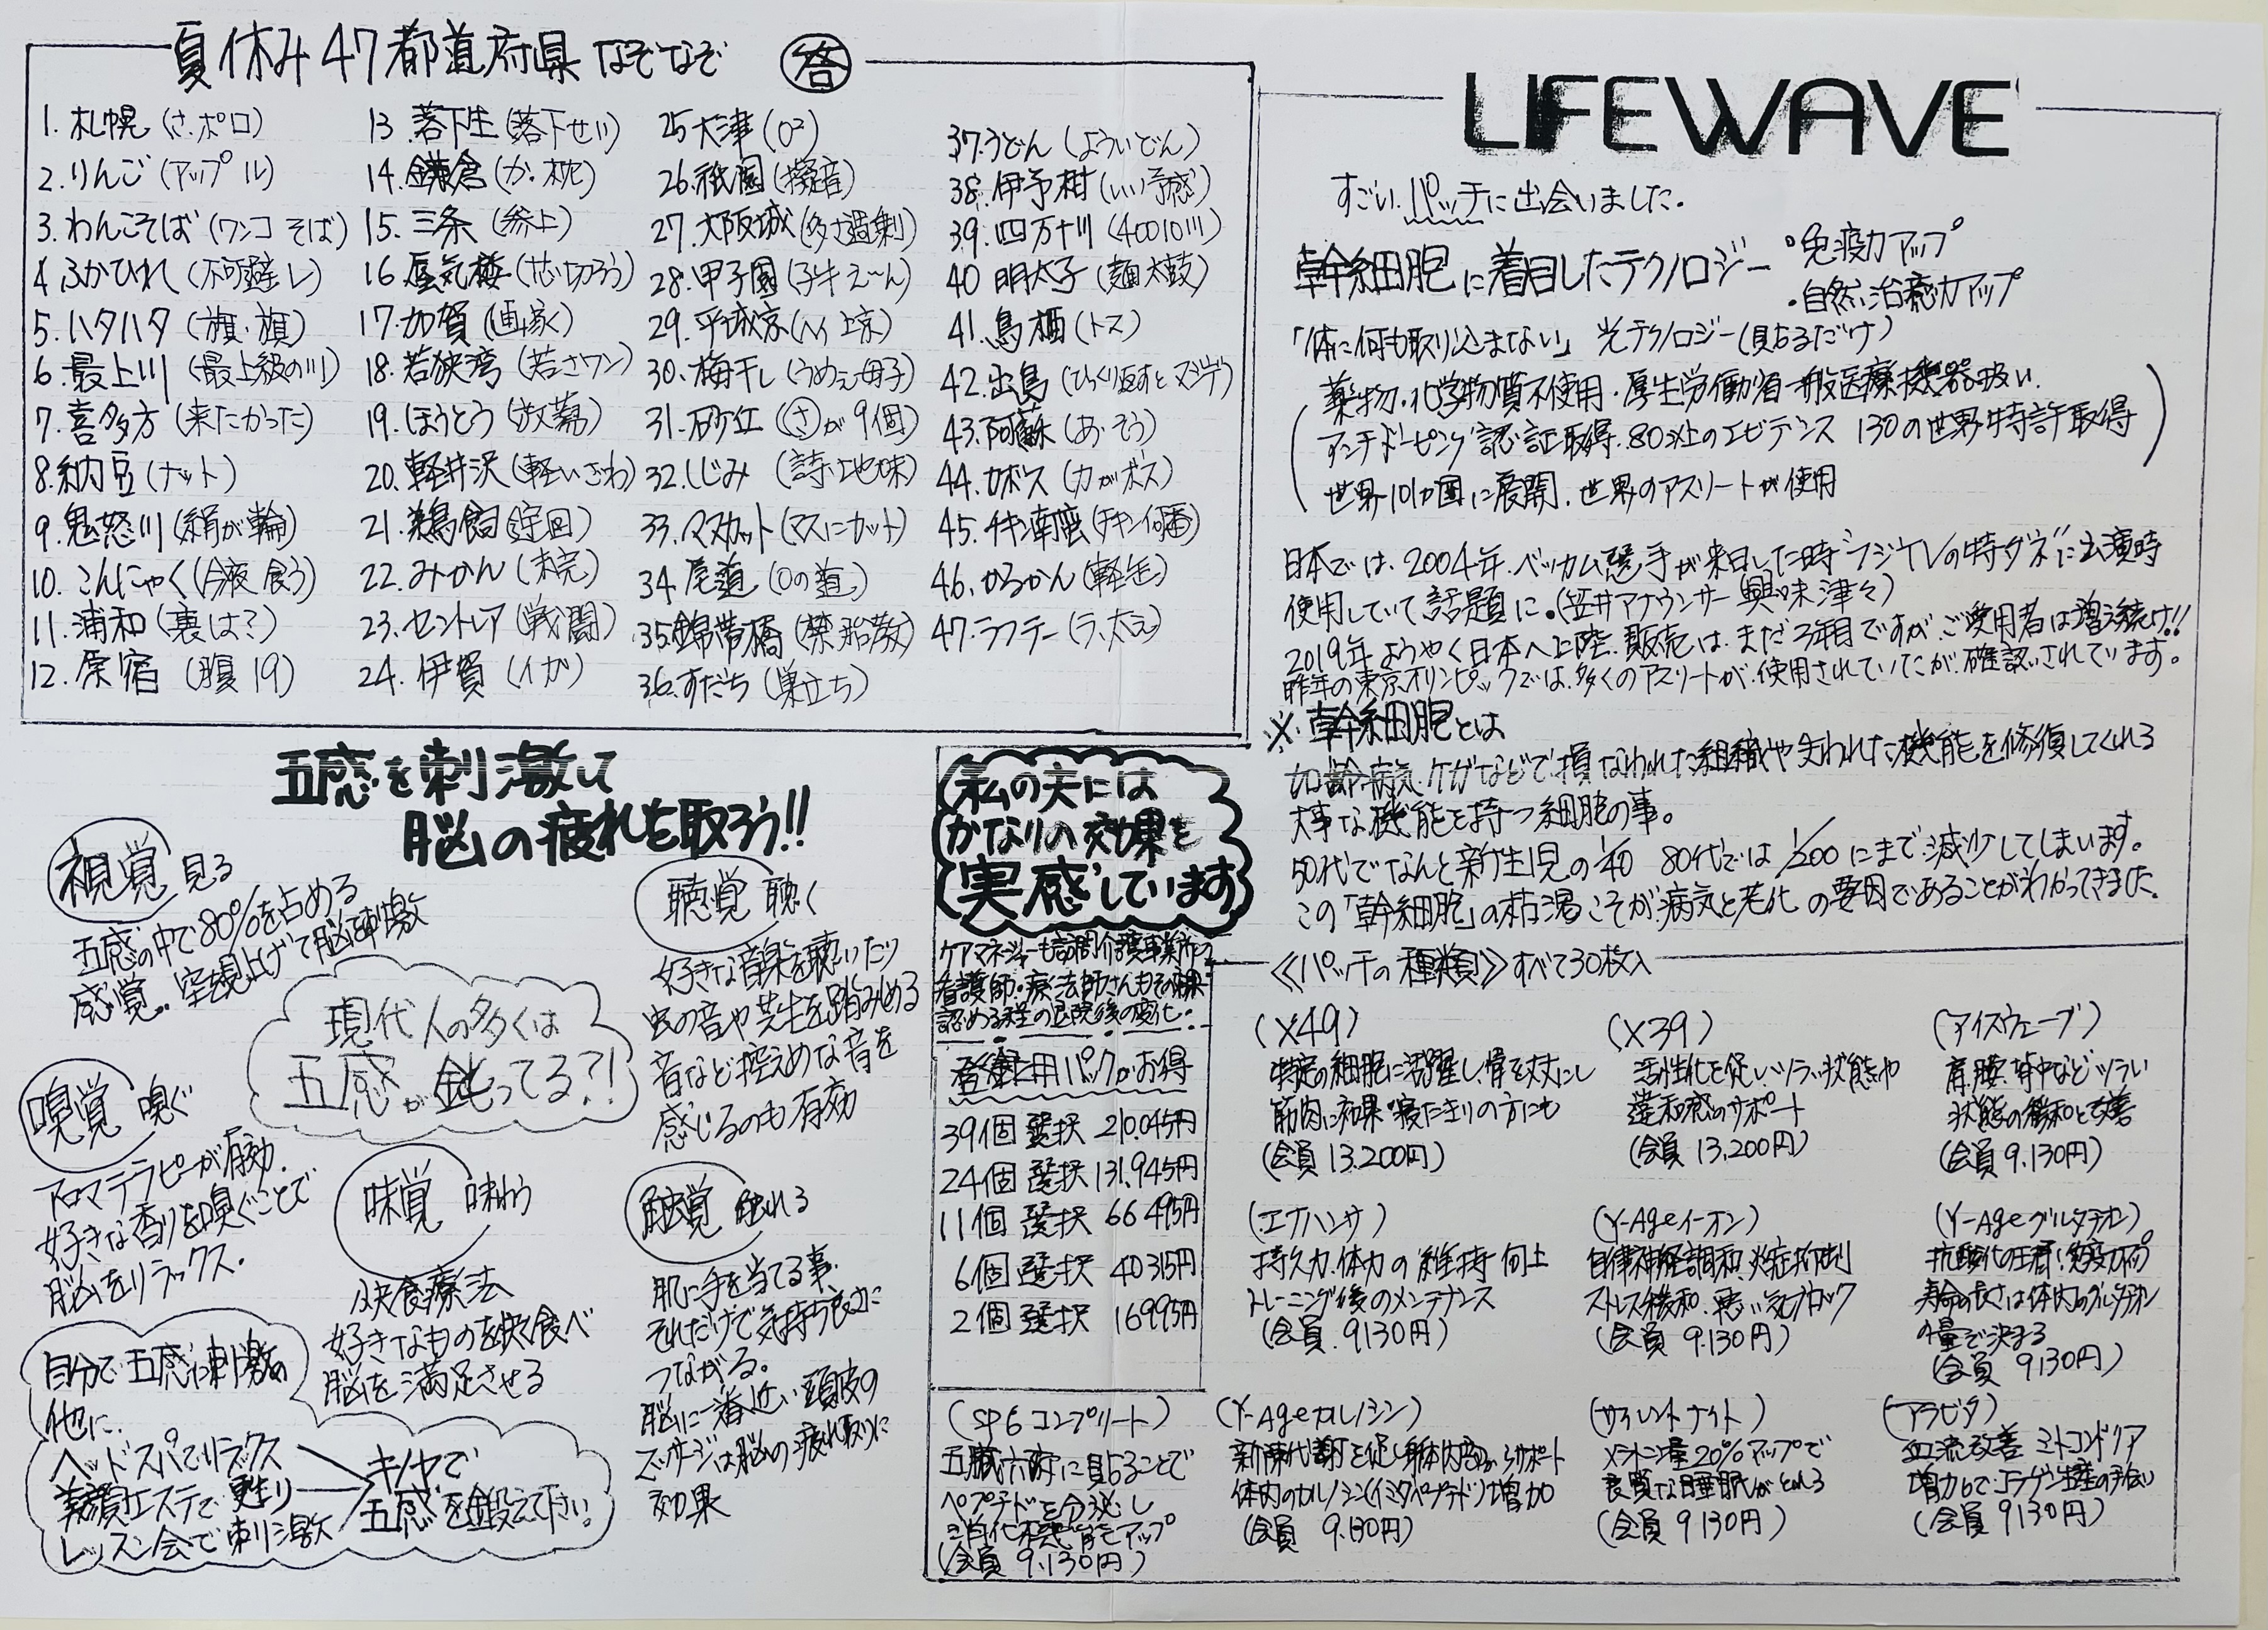 夏休み47都道府県なぞなぞ 答
1. 札幌 (さ、ポロ)
2. りんご (アップル)
3. わんこそば (ワンコ そば)
4. ふかひれ (不可避レ)
5. ハタハタ (旗・旗)
6. 最上川 (最上級の川)
7. 喜多方 (来たかった)
8. 納豆 (ナット)
9. 鬼怒川 (絹が輪)
10. こんにゃく (今夜食う)
11. 浦和 (裏は?)
12. 原宿 (腹19)
13. 落下生 (落下せい)
14. 鎌倉 (か、枕)
15. 三条 (参上)
16. 蜃気楼 (芯切ろう)
17. 加賀 (画家)
18. 若狭湾 (若さワン)
19. ほうとう (放蕩)
20. 軽井沢 (軽いざわ)
21. 鵜飼
22. みかん (未完)
23. セントレア (戦闘)
24. 伊賀 (イガ)
25 大津 (O²)
26. 祇園 (擬音)
27. 大阪城 (多さ過剰)
28. 甲子園 (子牛え〜ん)
29. 平城京 (ヘイ上京)
30. 梅干し (うめぇ母子)
31. 砂丘 (さが9個)
32. しじみ (詩、地味)
33. マスカット (マスにカット)
34. 尾道 (Oの道)
35. 錦帯橋 (禁胎教)
36. すだち (巣立ち)
37. うどん (よういどん)
38. 伊予柑 (いい予感)
39. 四万十川 (40010川)
40 明太子 (麺太鼓)
41. 鳥栖 (トス)
42. 出島 (ひっくり返すとマジで)
43. 阿蘇 (あ、そう)
44. カボス (カがボス)
45. チキン南蛮 (チキン何番)
46. かるかん (軽缶)
47. ラフテー (ラ、太え)
LIFEWAVE
すごい パッチに出会いました。
幹細胞に着目したテクノロジー
・免疫力アップ
・自然治癒力アップ
「体に何も取り込まない」光テクノロジー(貼るだけ)
薬物・化学物質不使用・厚生労働省一般医療機器扱い
アンチドーピング認証取得. 80以上のエビデンス 130の世界特許取得
世界101ヵ国に展開. 世界のアスリートが使用
日本では、2004年、ベッカム選手が来日した時“フジTVの特ダネ”に出演時
使用していて話題に。(笠井アナウンサー興味津々)
2019年ようやく日本へ上陸、販売はまだ3年目ですが、ご愛用者は増え続け!!
昨年の東京オリンピックでは、多くのアスリートが、使用されていたが確認されています。
※幹細胞とは
加齢、病気、ケガなどで損なわれた組織や失われた機能を修復してくれる
大事な機能を持つ細胞の事。
50代でなんと新生児の1/40 80代では1/200にまで減少してしまいます。
この「幹細胞」の枯渇こそが病気と老化の要因であることがわかってきました。
五感を刺激して
脳の疲れを取ろう!!
視覚 見る
五感の中で80%を占める
感覚。空を見上げて脳に刺激
現代人の多くは
五感が鈍ってる?!
嗅覚 嗅ぐ
アロマテラピーが有効.
好きな香りを嗅ぐことで
脳をリラックス.
味覚 味わう
快食療法
好きなものを快く食べ
脳を満足させる
聴覚 聴く
好きな音楽を聴いたり
虫の音や芝生を踏みしめる
音など控えめな音を
感じるのも有効
触覚 触れる
肌に手を当てる事.
それだけで気持ち良さに
つながる。
脳に一番近い頭皮の
マッサージは脳の疲れ取りに
効果
自分で五感に刺激の
他に、
ヘッドスパでリラックス
美顔エステで甦り
レッスン会で刺激
キノヤで
五感を鍛えて下さい!
私の夫には
かなりの効果を
実感しています
ケアマネジャーも訪問介護事業所の
看護師・療法師さんもその効果
認める程の退院後の変化..
登録用パックがお得
39個選択 210.045円
24個選択 131.945円
11個選択 66495円
6個選択 40315円
2個選択 16995円
《パッチの種類》すべて30枚入
(X49)
特定の細胞に活躍し、骨を丈夫にし
筋肉に効果・寝たきりの方にも
(会員13.200円)
(X39)
活性化を促し、ツラい状態や
違和感のサポート
(会員13.200円)
(アイスウェーブ)
肩、腰、背中などツラい
状態の緩和と改善
(会員9.130円)
(エナハンサ)
持久力、体力の維持 向上
トレーニング後のメンテナンス
(会員. 9130円)
(Y-Ageイーオン)
自律神経調和、炎症抑制
ストレス緩和. 悪い気ブロック
(会員 9.130円)
(Y-Ageグルタチオン)
抗酸化の王者!免疫力アップ
寿命の長さは体内のグルタチオン
の量で決まる
(会員 9.130円)
(SP6コンプリート)
五臓六腑に貼ることで
ペプチドを分泌し
(会員 9.130円)
(Y-Ageカルノシン)
新陳代謝を促し身体内面からサポート
体内のカルノシン(イミダペプチド)増加
(会員 9.130円)
(サイレントナイト)
メラトニン量20%アップで
良質な睡眠がとれる
(会員 9130円)
(アラビダ)
血流改善 ミトコンドリア
増加してコラーゲン生産の手伝い
(会員 9130円)